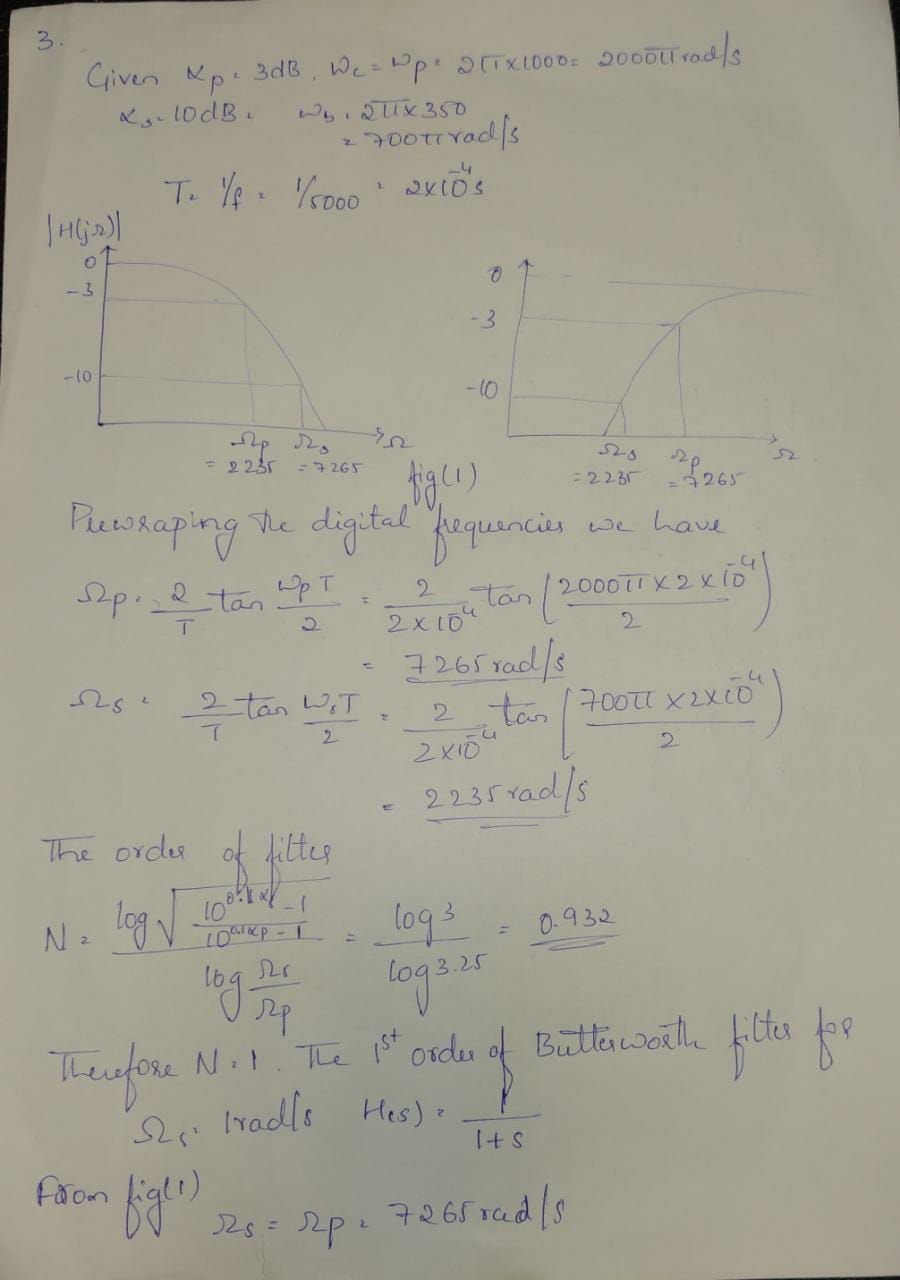 3.
Given αp = 3dB, ωc = ωp = 2π×1000 = 2000π rad/s
αs = 10dB. ωs = 2π×350
= 700π rad/s
T = 1/f = 1/5000 = 2×10⁻⁴s
|H(jΩ)|
0
-3
-10
Ωp Ωs Ω
= 2235 = 7265
0
-3
-10
Ωs Ωp Ω
= 2235 = 7265
fig(1)
Prewraping the digital frequencies we have
Ωp = 2/T tan ωpT/2 = 2/2×10⁻⁴ tan (2000π×2×10⁻⁴/2)
= 7265 rad/s
Ωs = 2/T tan ωsT/2 = 2/2×10⁻⁴ tan (700π×2×10⁻⁴/2)
= 2235 rad/s
The order of filter
N = log √(10^0.1αs - 1/10^0.1αp - 1) / log Ωs/Ωp = log 3/log 3.25 = 0.932
Therefore N = 1. The 1st order of Butterworth filter for
Ωs = 1 rad/s H(s) = 1/1+s
From fig(1)
Ωs = Ωp = 7265 rad/s